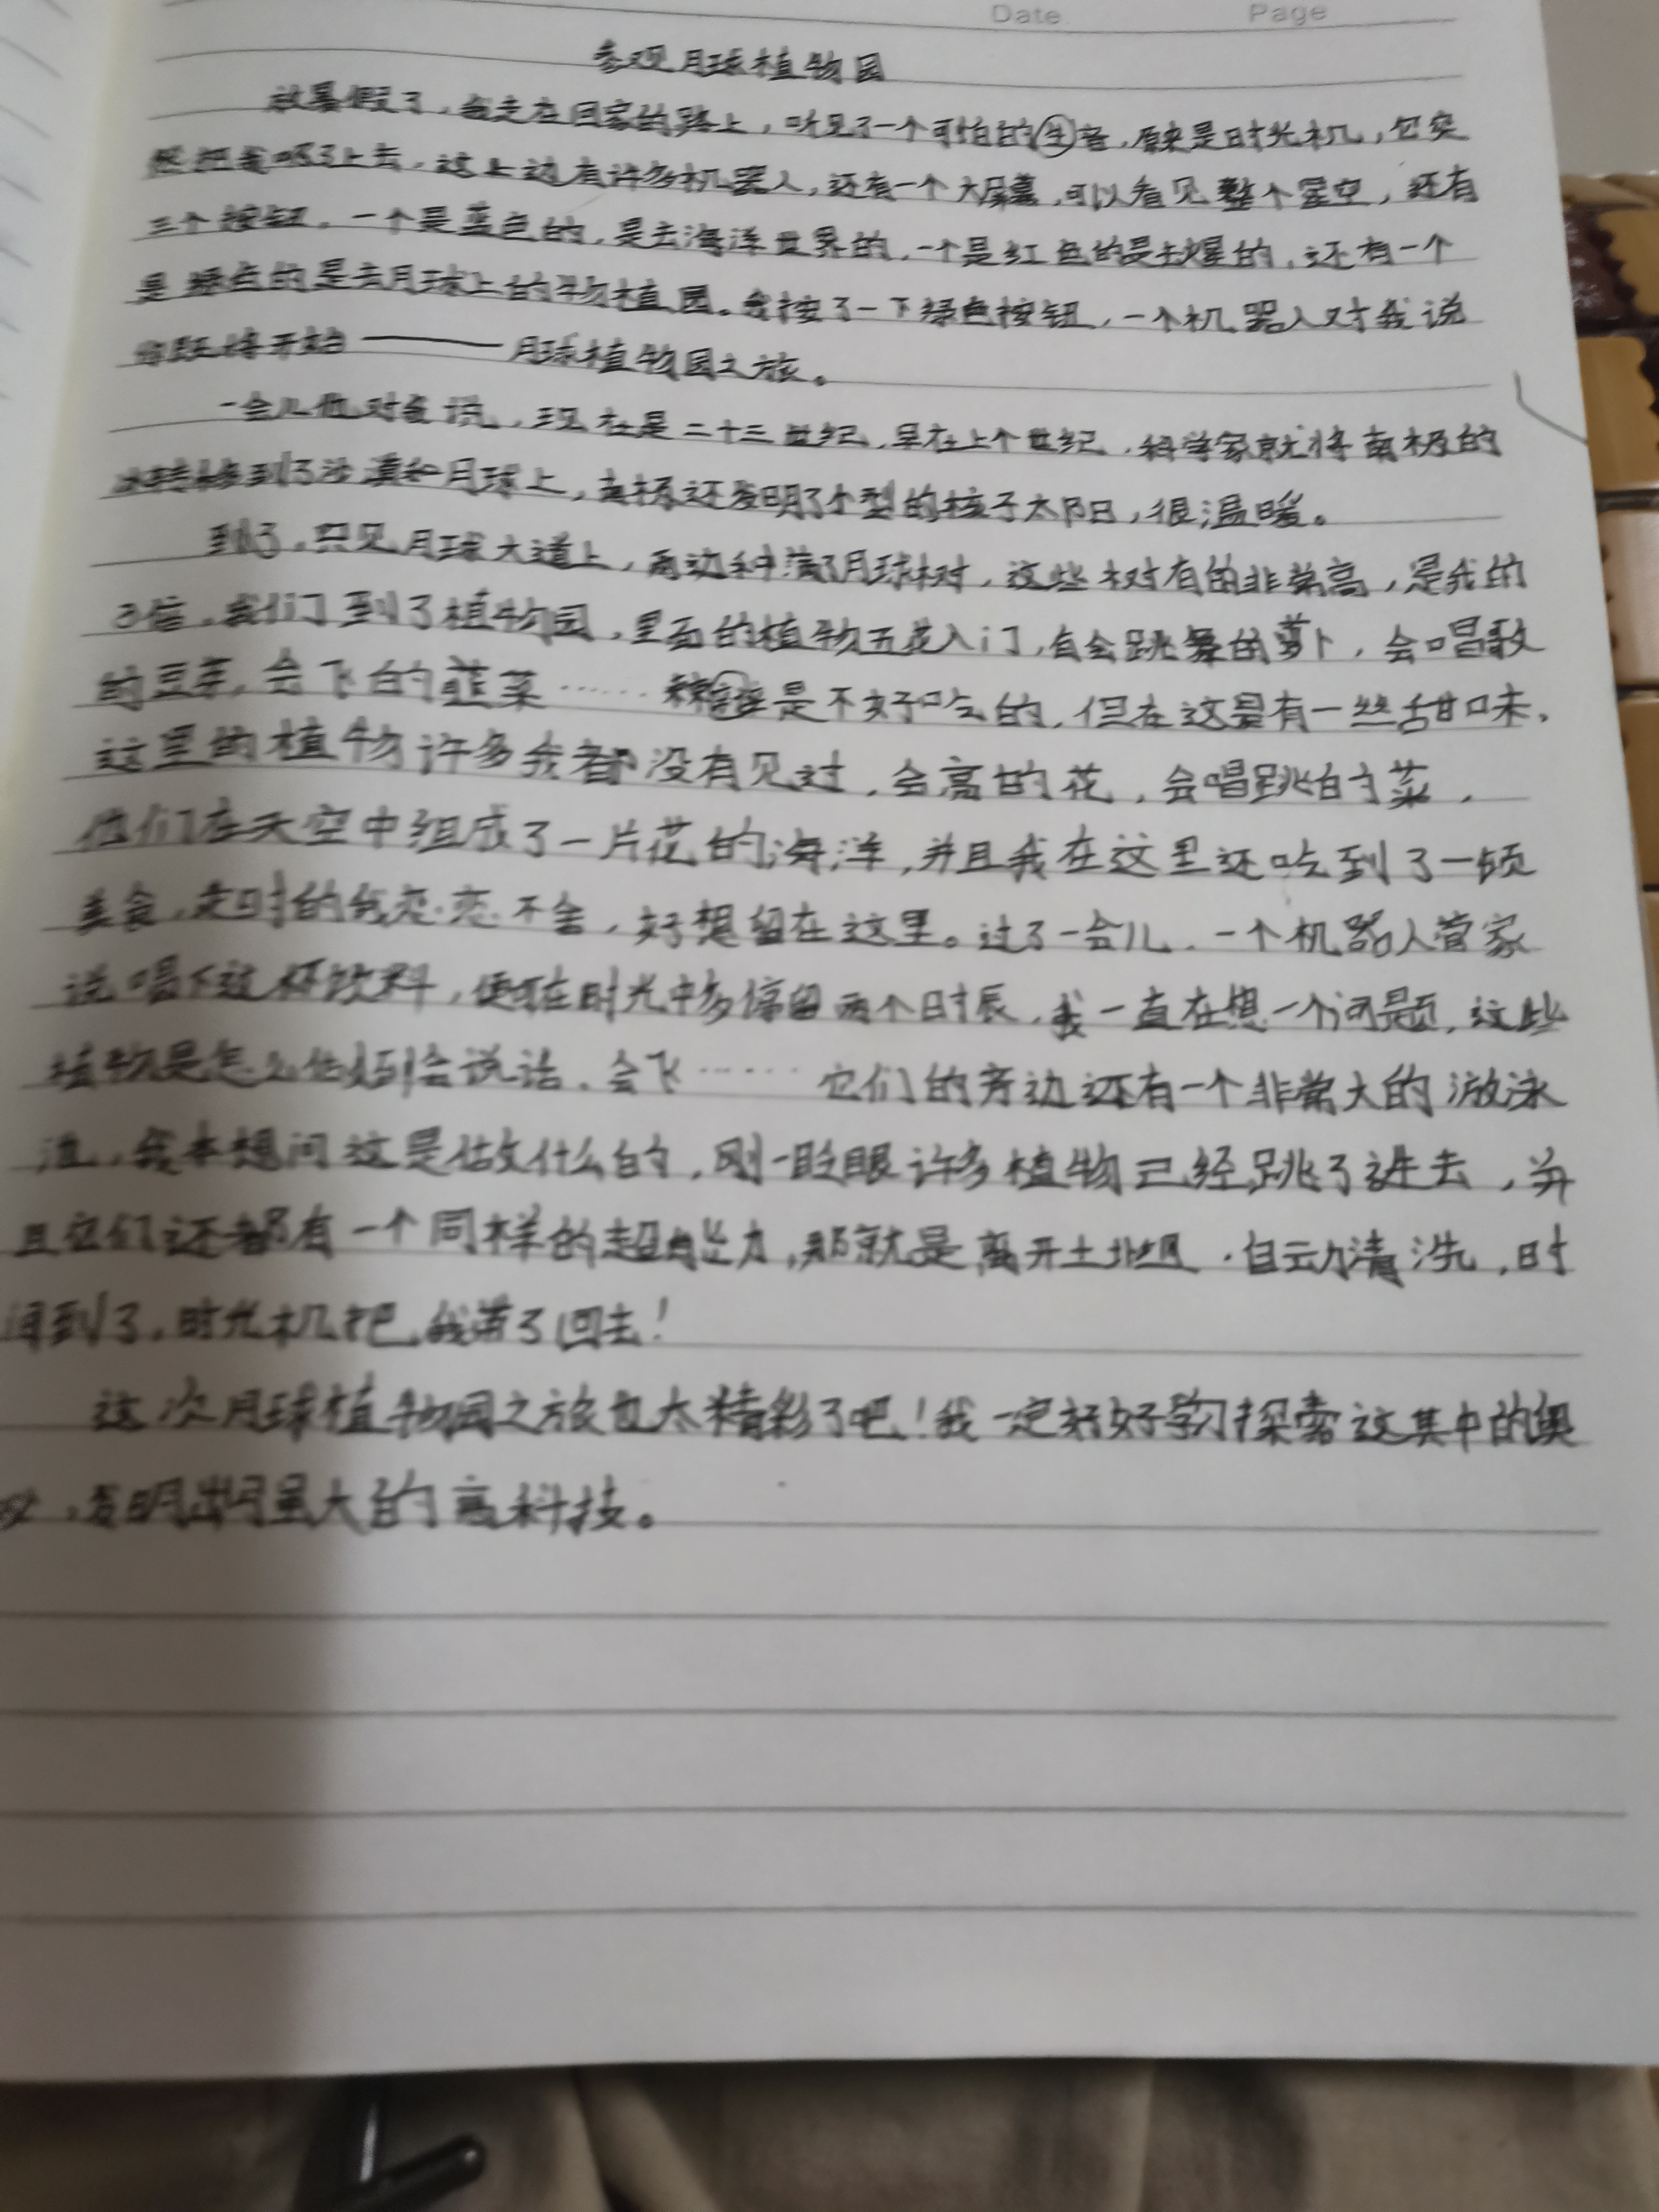 Date Page
参观月球植物园
放暑假了，我走在回家的路上，听见了一个可怕的生音，原来是时光机，它突
然把我吸了上去，这上边有许多机器人，还有一个大屏幕，可以看见整个星空，还有
三个按钮。一个是蓝色的，是去海洋世界的，一个是红色的是去爆的，还有一个
是绿色的是去月球上的物植园。我按了一下绿色按钮，一个机器人对我说
你既将开始———月球植物园之旅。
一会儿他对我说，现在是二十三世纪，早在上个世纪，科学家就将南极的
冰转移到了沙漠和月球上，还发明了小型的核子太阳，很温暖。
到了，只见月球大道上，两边种满了月球树，这些树有的非常高，是我的
3倍。我们到了植物园，里面的植物五花入门，有会跳舞的萝卜，会唱歌
的豆芽，会飞的韮菜……是不好吃的，但在这是有一丝甜味。
这里的植物许多我都没有见过，会高的花，会唱跳的菜，
他们在天空中组成了一片花的海洋，并且我在这里还吃到了一顿
美食，走时的我恋恋不舍，好想留在这里。过了一会儿，一个机器人管家
说唱下这杯饮料，便可在时光中多停留两个时辰，我一直在想一个问题，这些
植物是怎么做到会说话、会飞……它们的旁边还有一个非常大的游泳
池，我本想问这是做什么的，刚一眨眼许多植物已经跳了进去，并
且它们还都有一个同样的超能力，那就是离开土地，自动清洗，时
间到了，时光机把我带了回去！
这次月球植物园之旅也太精彩了吧！我一定好好学习探索这其中的奥
，发明出强大的高科技。